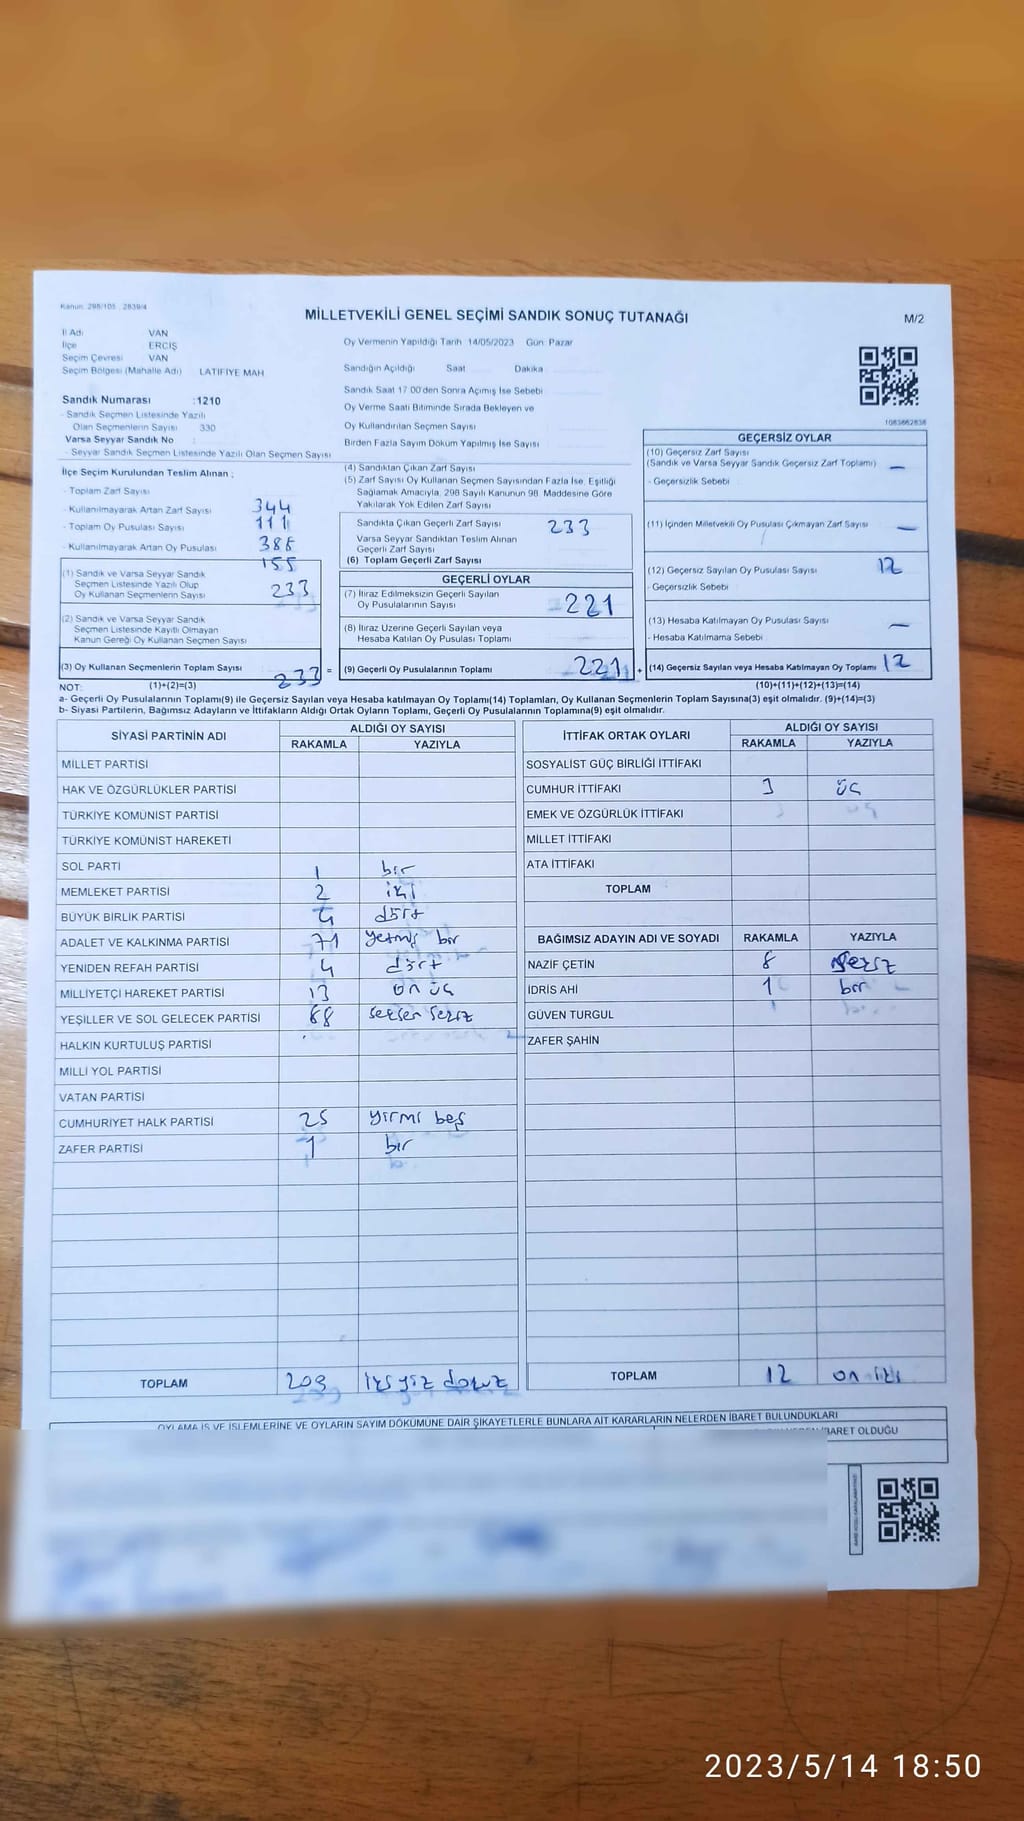 Kanun: 298/105 2839/4
MİLLETVEKİLİ GENEL SEÇİMİ SANDIK SONUÇ TUTANAĞI
M/2
İl Adı VAN
İlçe ERCİŞ
Seçim Çevresi VAN
Seçim Bölgesi (Mahalle Adı) LATİFİYE MAH
Sandık Numarası :1210
- Sandık Seçmen Listesinde Yazılı
Olan Seçmenlerin Sayısı 330
Varsa Seyyar Sandık No :
- Seyyar Sandık Seçmen Listesinde Yazılı Olan Seçmen Sayısı
Oy Vermenin Yapıldığı Tarih 14/05/2023 Gün: Pazar
Sandığın Açıldığı Saat Dakika
Sandık Saat 17 00'den Sonra Açımış İse Sebebi
Oy Verme Saati Bitiminde Sırada Bekleyen ve
Oy Kullandırılan Seçmen Sayısı
Birden Fazla Sayım Döküm Yapılmış İse Sayısı
1083662838
İlçe Seçim Kurulundan Teslim Alınan ;
- Toplam Zarf Sayısı 344
- Kullanılmayarak Artan Zarf Sayısı 111
- Toplam Oy Pusulası Sayısı 388
- Kullanılmayarak Artan Oy Pusulası 155
(1) Sandık ve Varsa Seyyar Sandık
Seçmen Listesinde Yazılı Olup
Oy Kullanan Seçmenlerin Sayısı 233
(2) Sandık ve Varsa Seyyar Sandık
Seçmen Listesinde Kayıtlı Olmayan
Kanun Gereği Oy Kullanan Seçmen Sayısı
(3) Oy Kullanan Seçmenlerin Toplam Sayısı 233 =
(4) Sandıktan Çıkan Zarf Sayısı
(5) Zarf Sayısı Oy Kullanan Seçmen Sayısından Fazla İse, Eşitliği
Sağlamak Amacıyla, 298 Sayılı Kanunun 98. Maddesine Göre
Yakılarak Yok Edilen Zarf Sayısı
Sandıkta Çıkan Geçerli Zarf Sayısı 233
Varsa Seyyar Sandıktan Teslim Alınan
Geçerli Zarf Sayısı
(6) Toplam Geçerli Zarf Sayısı
GEÇERLİ OYLAR
(7) İtiraz Edilmeksizin Geçerli Sayılan
Oy Pusulalarının Sayısı 221
(8) İtiraz Üzerine Geçerli Sayılan veya
Hesaba Katılan Oy Pusulası Toplamı
(9) Geçerli Oy Pusulalarının Toplamı 221 +
GEÇERSİZ OYLAR
(10) Geçersiz Zarf Sayısı
(Sandık ve Varsa Seyyar Sandık Geçersiz Zarf Toplamı) —
- Geçersizlik Sebebi
(11) İçinden Milletvekili Oy Pusulası Çıkmayan Zarf Sayısı —
(12) Geçersiz Sayılan Oy Pusulası Sayısı 12
- Geçersizlik Sebebi
(13) Hesaba Katılmayan Oy Pusulası Sayısı —
- Hesaba Katılmama Sebebi
(14) Geçersiz Sayılan veya Hesaba Katılmayan Oy Toplamı 12
NOT: (1)+(2)=(3) (10)+(11)+(12)+(13)=(14)
a- Geçerli Oy Pusulalarının Toplamı(9) ile Geçersiz Sayılan veya Hesaba katılmayan Oy Toplamı(14) Toplamları, Oy Kullanan Seçmenlerin Toplam Sayısına(3) eşit olmalıdır. (9)+(14)=(3)
b- Siyasi Partilerin, Bağımsız Adayların ve İttifakların Aldığı Ortak Oyların Toplamı, Geçerli Oy Pusulalarının Toplamına(9) eşit olmalıdır.
SİYASİ PARTİNİN ADI ALDIĞI OY SAYISI
RAKAMLA YAZIYLA
MİLLET PARTİSİ
HAK VE ÖZGÜRLÜKLER PARTİSİ
TÜRKİYE KOMÜNİST PARTİSİ
TÜRKİYE KOMÜNİST HAREKETİ
SOL PARTİ 1 bir
MEMLEKET PARTİSİ 2 iki
BÜYÜK BİRLİK PARTİSİ 4 dört
ADALET VE KALKINMA PARTİSİ 71 yetmiş bir
YENİDEN REFAH PARTİSİ 4 dört
MİLLİYETÇİ HAREKET PARTİSİ 13 on üç
YEŞİLLER VE SOL GELECEK PARTİSİ 88 seksen sekiz
HALKIN KURTULUŞ PARTİSİ
MİLLİ YOL PARTİSİ
VATAN PARTİSİ
CUMHURİYET HALK PARTİSİ 25 yirmi beş
ZAFER PARTİSİ 1 bir
TOPLAM 209 iki yüz dokuz
İTTİFAK ORTAK OYLARI ALDIĞI OY SAYISI
RAKAMLA YAZIYLA
SOSYALİST GÜÇ BİRLİĞİ İTTİFAKI
CUMHUR İTTİFAKI 3 üç
EMEK VE ÖZGÜRLÜK İTTİFAKI
MİLLET İTTİFAKI
ATA İTTİFAKI
TOPLAM
BAĞIMSIZ ADAYIN ADI VE SOYADI RAKAMLA YAZIYLA
NAZİF ÇETİN 8 sekiz
İDRİS AHİ 1 bir
GÜVEN TURGUL
ZAFER ŞAHİN
TOPLAM 12 on iki
OYLAMA İŞ VE İŞLEMLERİNE VE OYLARIN SAYIM DÖKÜMÜNE DAİR ŞİKAYETLERLE BUNLARA AİT KARARLARIN NELERDEN İBARET BULUNDUKLARI
İBARET OLDUĞU
2023/5/14 18:50